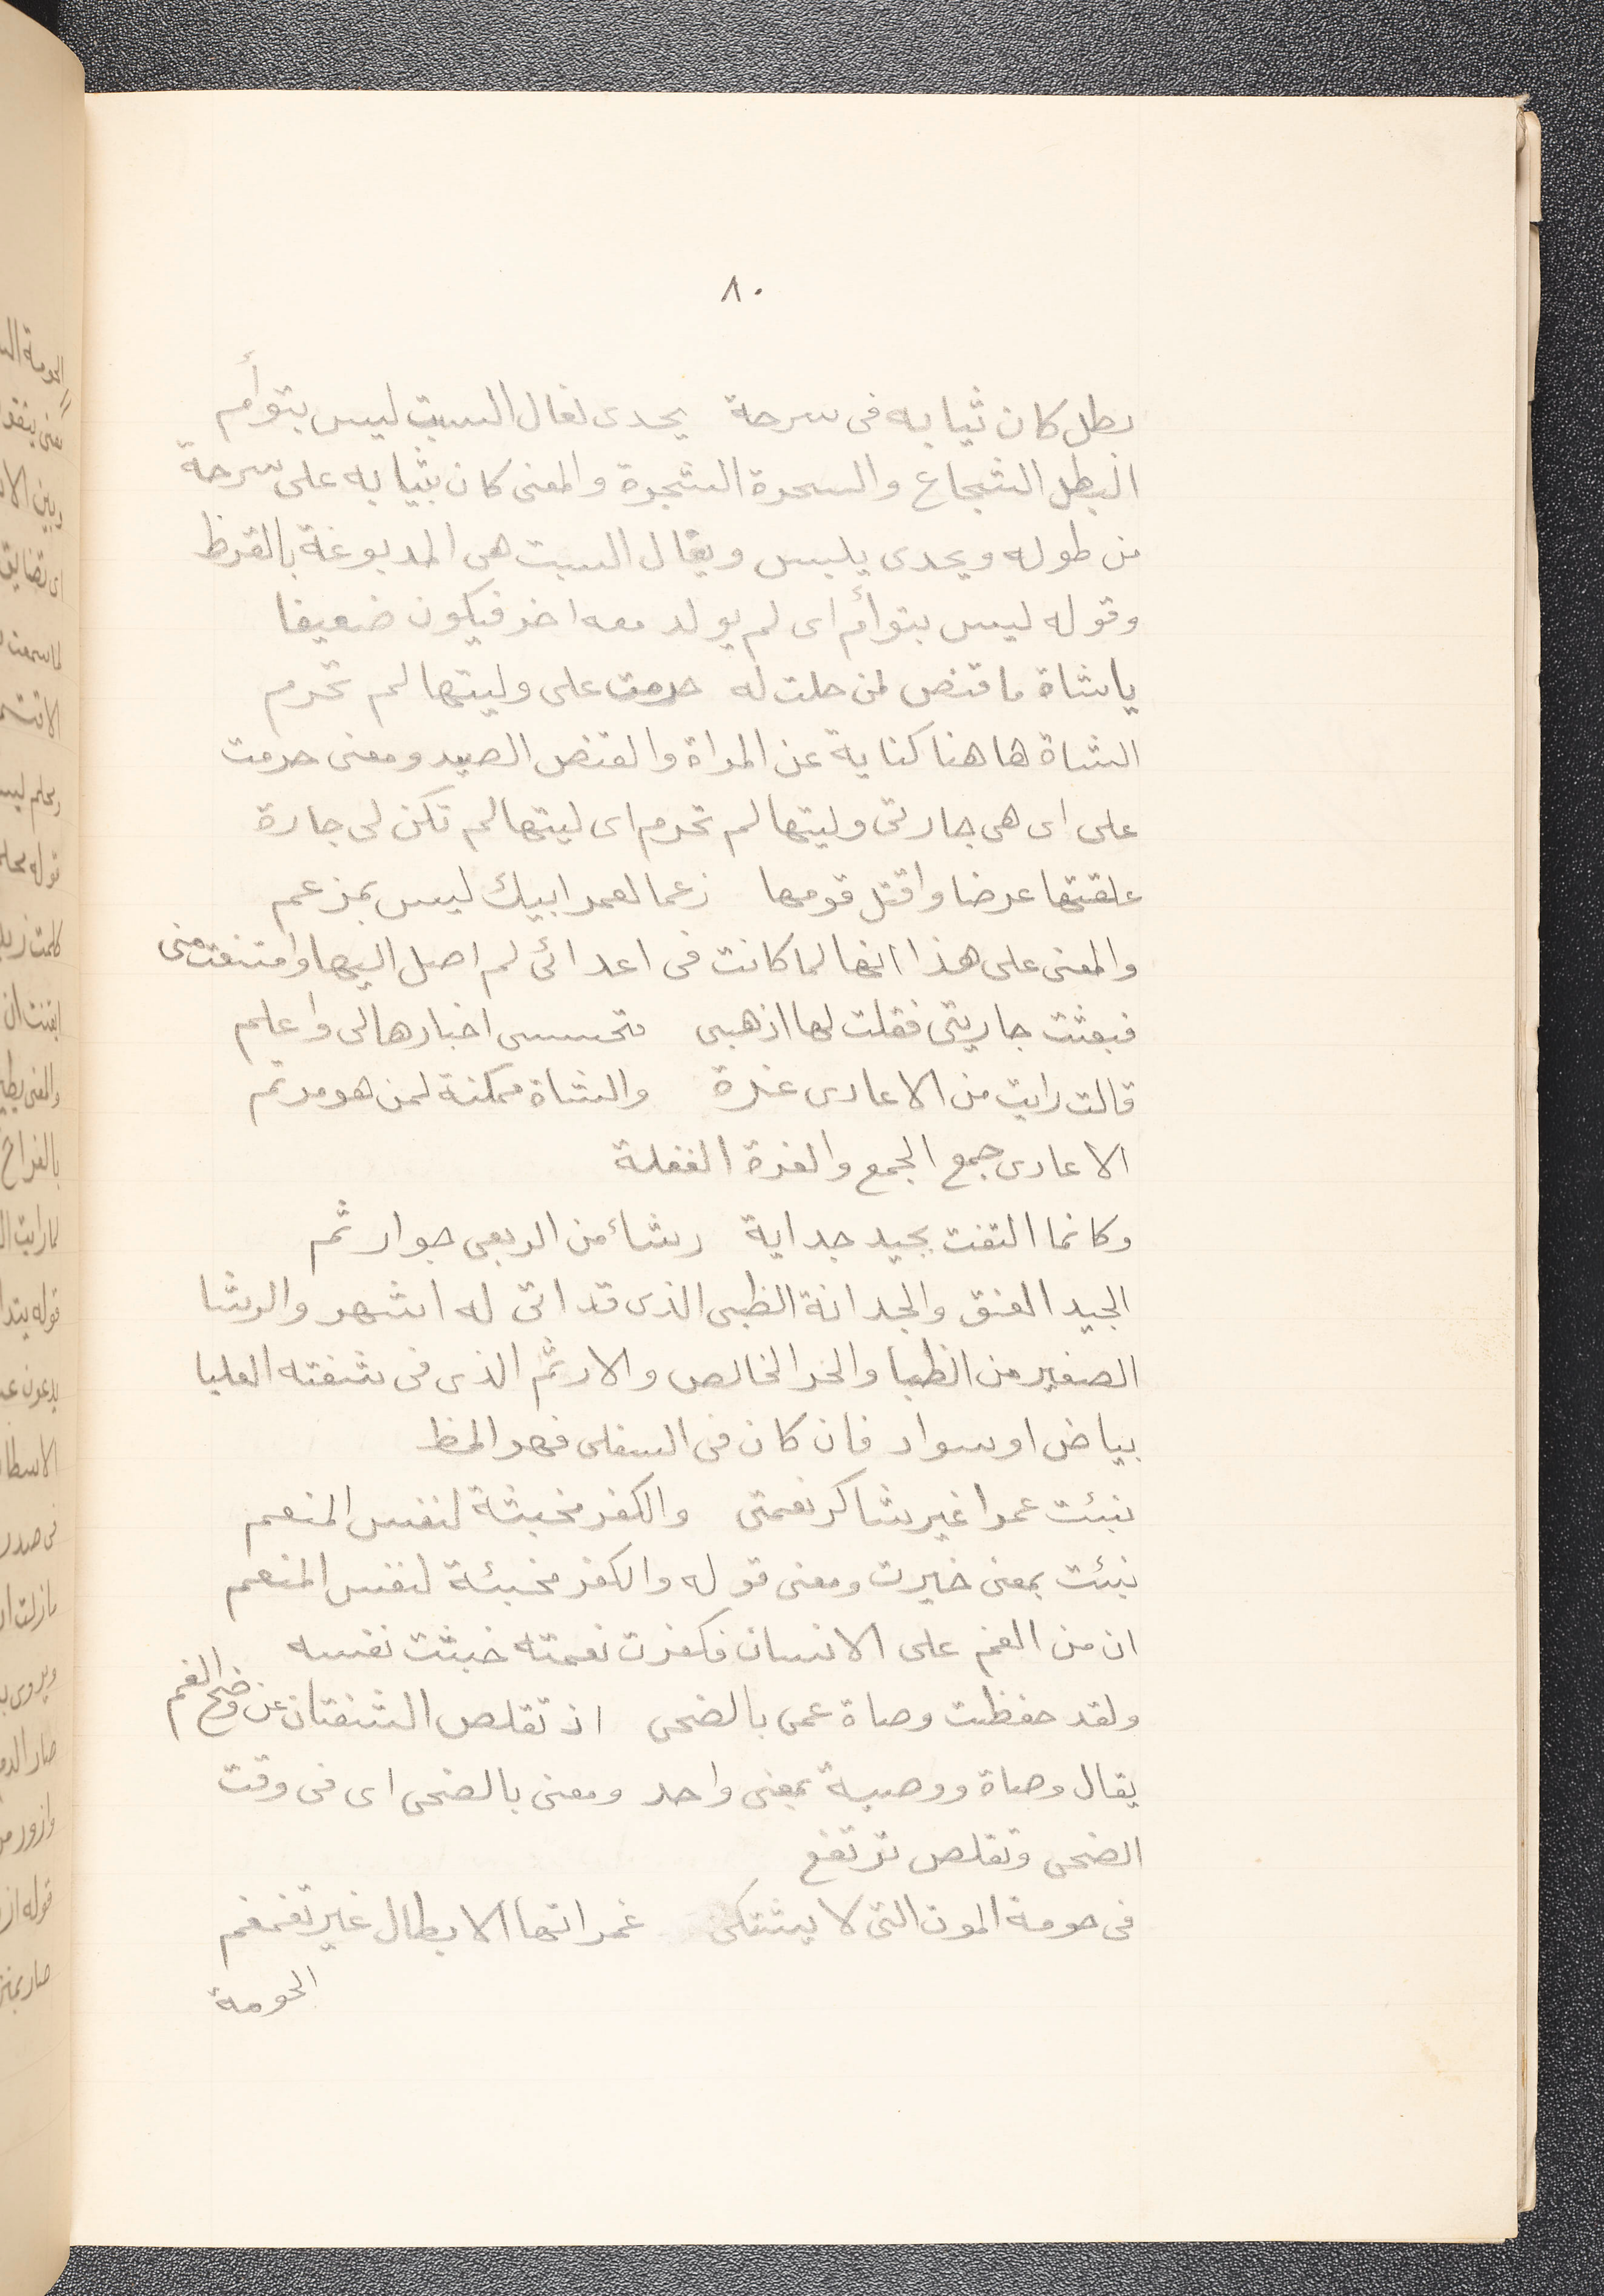 ٨٠
بطل كان ثيابه فى سرحة يحدى نعال السبت ليس بتوأم
البطل الشجاع والسحرة الشجرة والمعنى كان بثيابه على سرحة
من طوله ويحدى يلبس ويقال السبت هى المدبوغة بالقرظ
وقوله ليس بتوأم اى لم يولد معه اخر فيكون ضعيفا
ياشاة ما قنص لمن حلت له حرمت على وليتها لم تحرم
الشاة هاهنا كناية عن المراة والقنص الصيد ومعنى حرمت
على اى هى جارتى وليتها لم تحرم اى ليتها لم تكن لى جارة
علقتها عرضا واقتل قومها زعما لعمر ابيك ليس بمزعم
والمعنى على هذا انها لما كانت فى اعدائى لم اصل اليها وامتنعت منى
فبعثت جاريتى فقلت لها اذهبى فتحسسى اخبارها لى واعلم
قالت رايت من الاعادى غرة والشاة ممكنة لمن هو مرتم
الاعادى جمع الجمع والغرة الغفلة
وكانما التفت بجيد جداية رشاء من الربعى حوار ثم
الجيد العنق والجدانة الظبى الذى قد اتى له اشهر والرشا
الصغير من الظبا والحر الخالص والارثم الذى فى شفته العليا
بياض او سواد فان كان فى السفلى فهو المظ
نبئت عمرا غير شاكر نعمتى والكفر مخبثة لنفس المنعم
نبئت بمعنى خبرت ومعنى قوله والكفر مخبئة لنفس المنعم
ان من انعم على الانسان فكفرت نعمته خبثت نفسه
ولقد حفظت وصاة عمى بالضحى اذ تقلص الشفتان عن وضح الفم
يقال وصاة ووصية بمعنى واحد ومعنى بالضحى اى فى وقت
الضحى وتقلص ترتفع
فى حومة الموت التى لا يشتكى غمراتها الابطال غير تغمغم
الحومة